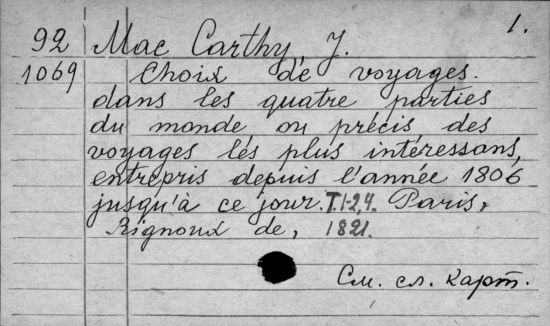 1.
92 Mac Carthy, J.
1069 Choix de voyages
dans les quatre parties
du monde, ou précis des
voyages les plus intéressans,
entrepris depuis l'année 1806
jusqu'à ce jour. T.1-2,4. Paris,
Rignoux de, 1821.
См. сл. карт.